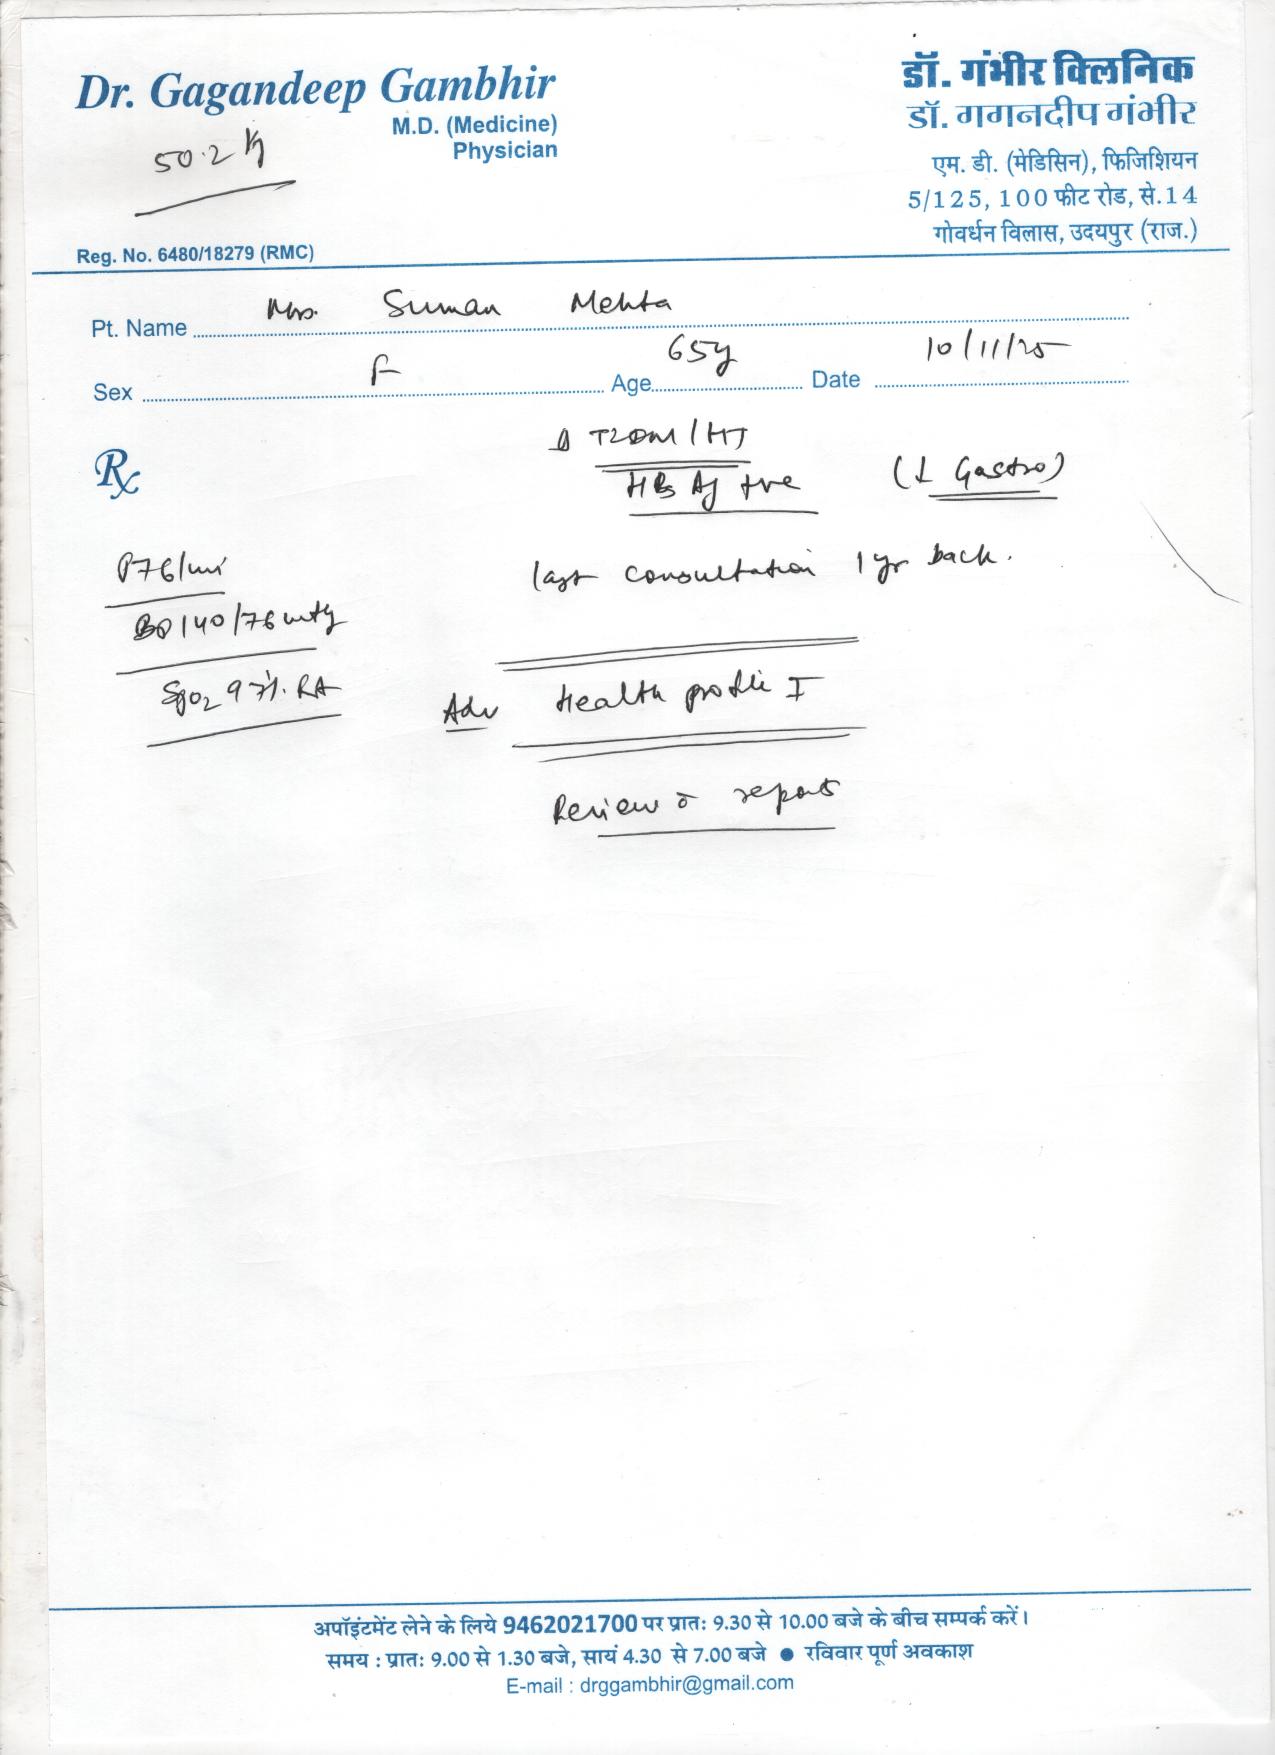 Dr. Gagandeep Gambhir
M.D. (Medicine)
Physician
50.2 kg
Reg. No. 6480/18279 (RMC)
डॉ. गंभीर क्लिनिक
डॉ. गगनदीप गंभीर
एम. डी. (मेडिसिन), फिजिशियन
5/125, 100 फीट रोड, से.14
गोवर्धन विलास, उदयपुर (राज.)
Pt. Name Mrs. Suman Mehta
Sex F Age 65y Date 10/11/25
Rx
T2DM/HT
HBsAg +ve (Gastro)
P 76/min
last consultation 1 yr back.
BP 140/76 mmHg
SpO2 97% RA
Adv Health profile I
Review c̄ reports
अपॉइंटमेंट लेने के लिये 9462021700 पर प्रातः 9.30 से 10.00 बजे के बीच सम्पर्क करें।
समय : प्रातः 9.00 से 1.30 बजे, सायं 4.30 से 7.00 बजे ● रविवार पूर्ण अवकाश
E-mail : drggambhir@gmail.com